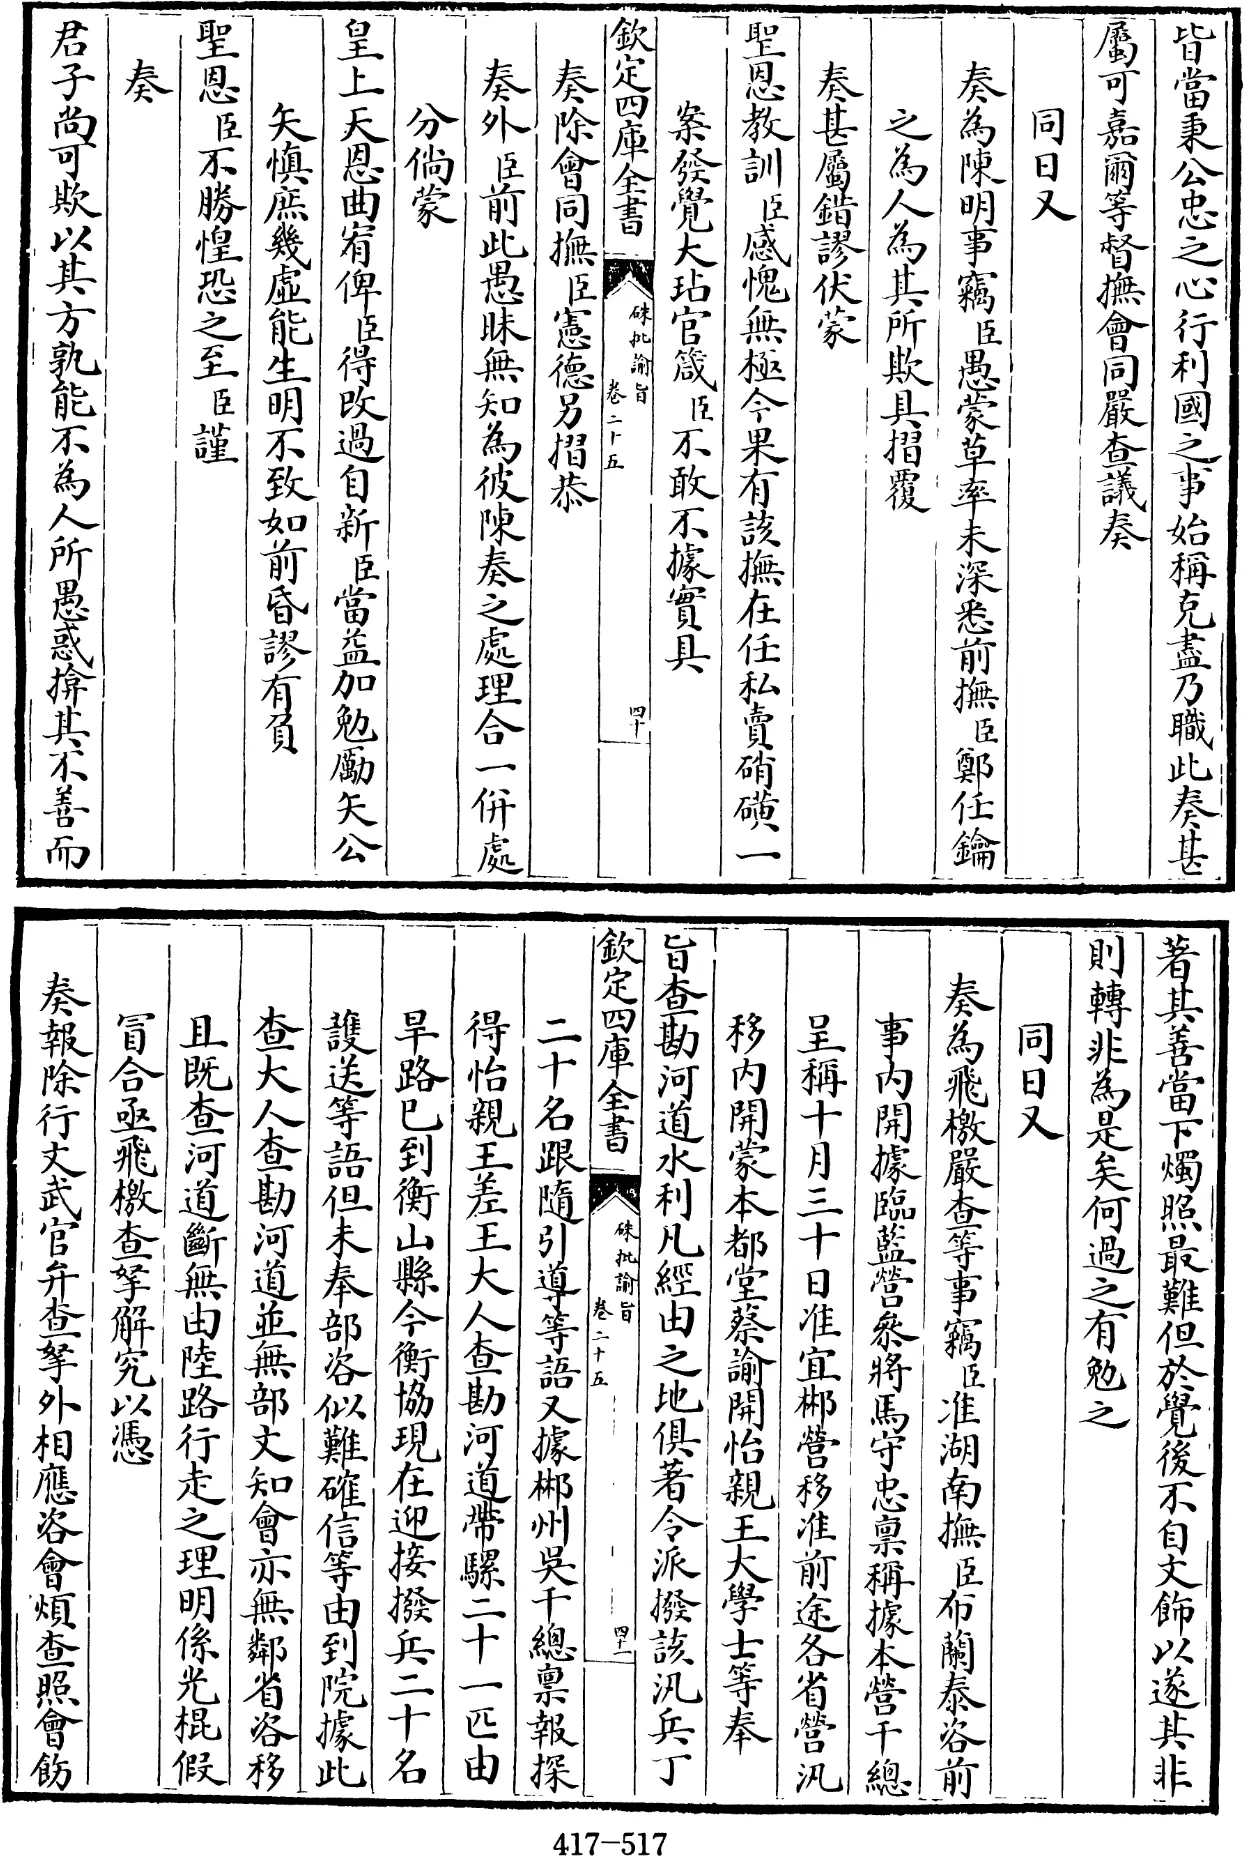 皆當秉公忠之心行利國之事始稱克盡乃職此奏甚
屬可嘉爾等督撫會同嚴查議奏
同日又
奏為陳明事竊臣愚蒙草率未深悉前撫臣鄭任鑰
之為人為其所欺具摺覆
奏甚屬錯謬伏蒙
聖恩教訓臣感愧無極今果有該撫在任私賣硝磺一
案發覺大玷官箴臣不敢不據實具
欽定四庫全書
硃批諭旨
卷二十五
四十
奏除會同撫臣憲德另摺恭
奏外臣前此愚昧無知為彼陳奏之處理合一併處
分倘蒙
皇上天恩曲宥俾臣得改過自新臣當益加勉勵矢公
矢慎庶幾虛能生明不致如前昏謬有負
聖恩臣不勝惶恐之至臣謹
奏
君子尚可欺以其方孰能不為人所愚惑揜其不善而
著其善當下燭照最難但於覺後不自文飾以遂其非
則轉非為是矣何過之有勉之
同日又
奏為飛檄嚴查等事竊臣准湖南撫臣布蘭泰咨前
事內開據臨藍營叅將馬守忠禀稱據本營千總
呈稱十月三十日准宜郴營移准前途各省營汛
移內開蒙本都堂蔡諭開怡親王大學士等奉
旨查勘河道水利凡經由之地俱著令派撥該汛兵丁
欽定四庫全書
硃批諭旨
卷二十五
四十一
二十名跟隨引導等語又據郴州吳千總禀報探
得怡親王差王大人查勘河道帶騾二十一匹由
旱路已到衡山縣今衡協現在迎接撥兵二十名
護送等語但未奉部咨似難確信等由到院據此
查大人查勘河道並無部文知會亦無鄰省咨移
且既查河道斷無由陸路行走之理明係光棍假
冒合亟飛檄查拏解究以憑
奏報除行文武官弁查拏外相應咨會煩查照會飭
417-517